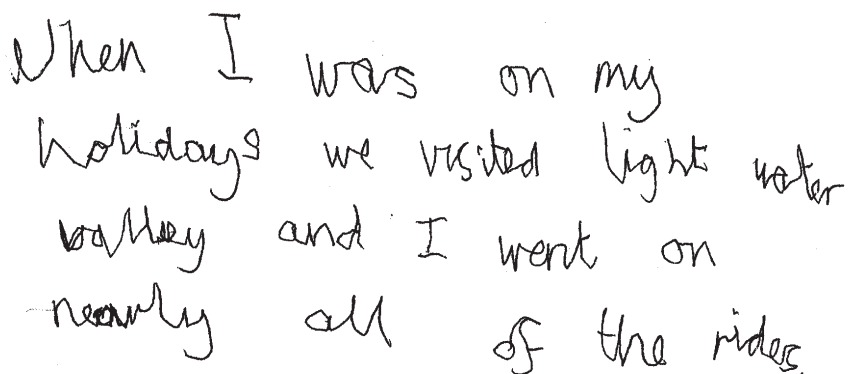 When I was on my
holidays we visited light water
valley and I went on
nearly all of the rides.